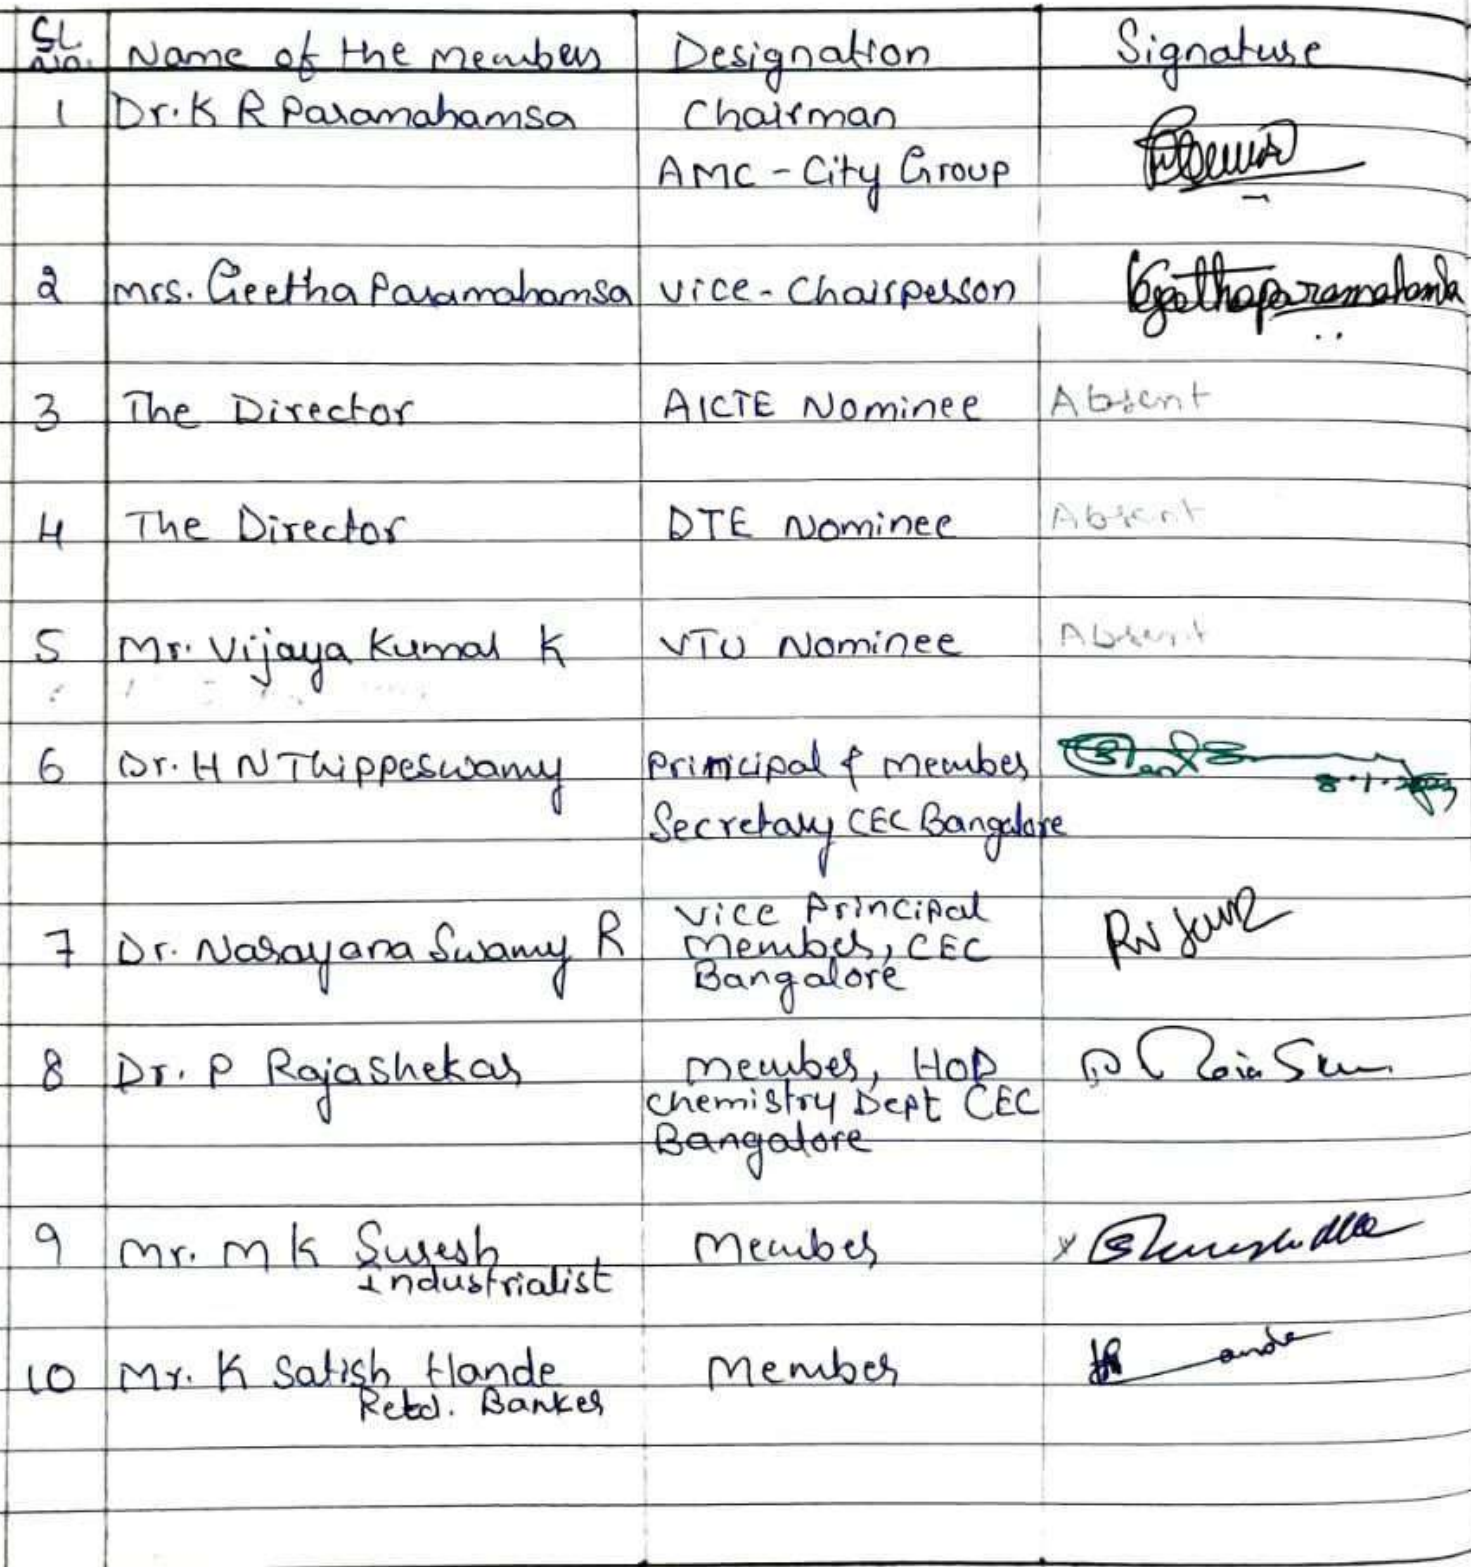 SL No. Name of the Member Designation Signature
1 Dr. K R Paramahamsa Chairman
AMC - City Group
2 Mrs. Geetha Paramahamsa Vice - Chairperson Geethaparamahamsa
3 The Director AICTE Nominee Absent
4 The Director DTE Nominee Absent
5 Mr. Vijaya Kumar K VTU Nominee Absent
6 Dr. H N Thippeswamy Principal & Member
Secretary CEC Bangalore
7 Dr. Narayana Swamy R Vice Principal
Member, CEC
Bangalore
8 Dr. P Rajashekar Member, HOD
Chemistry Dept CEC
Bangalore
9 Mr. M K Suresh Member
Industrialist
10 Mr. K Satish Hande Member
Retd. Banker